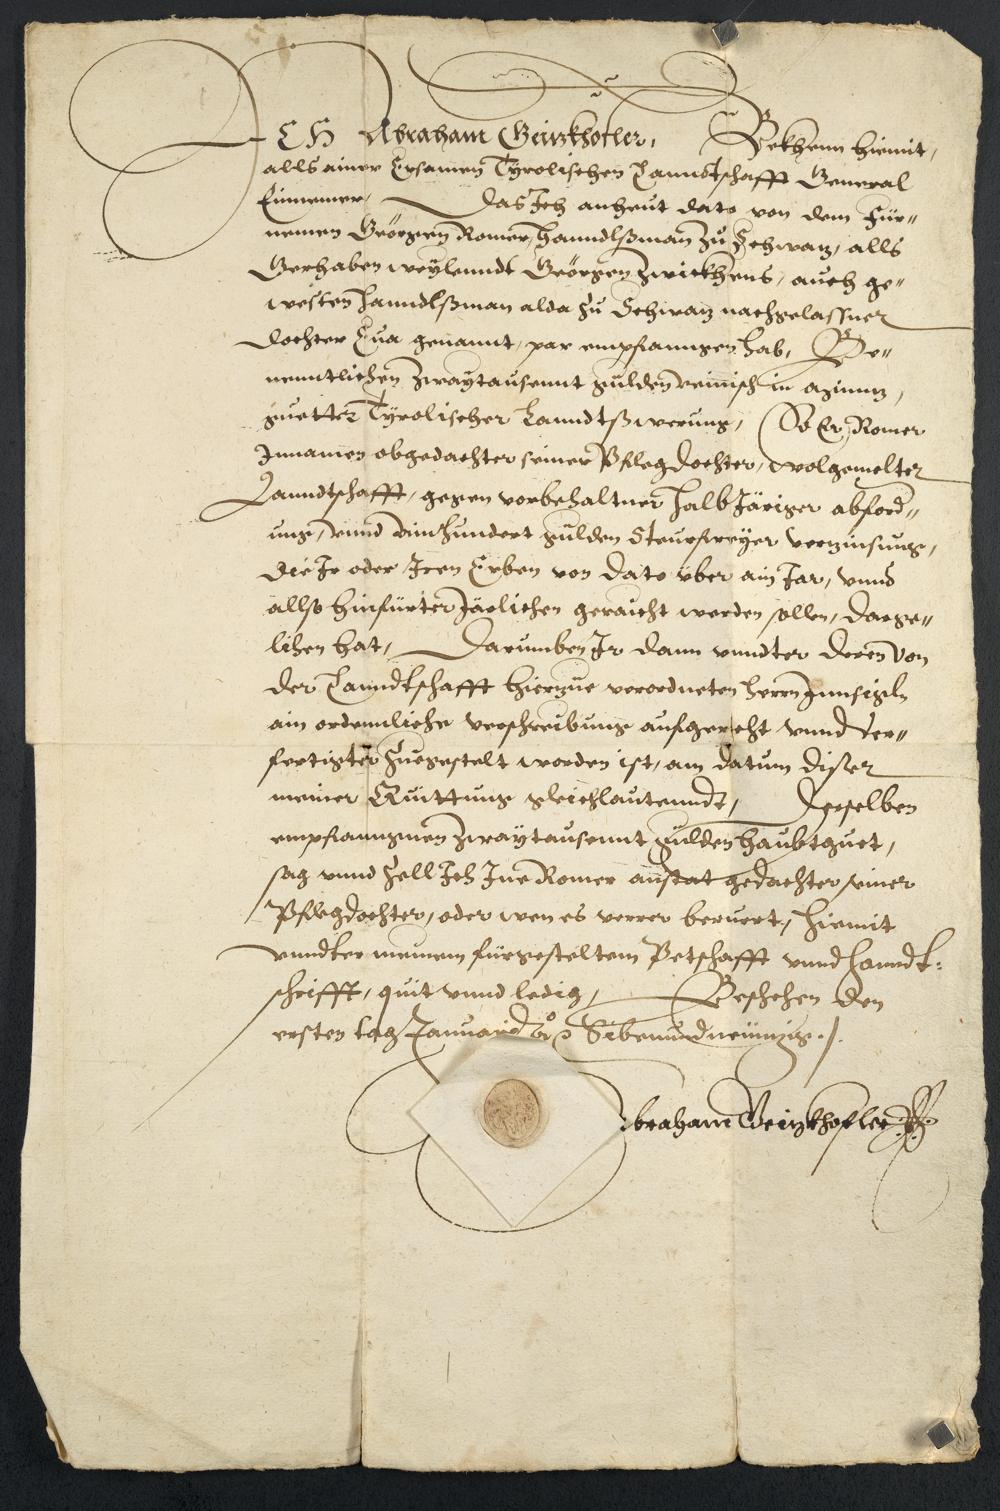 ICH Abraham Geizkhofler, Bekhenn hiemit,
alls ainer Ersamen Tyrolischen Lanndtschafft General
Einnemer, Das Ich anheut dato von dem Für„
nemen Geörgen Romer, Hanndlßman zu Schwaz, alls
Gerhaben weylenndt Geörgen Zwickhens, auch ge„
westen Hanndlßman alda zu Schwaz nachgelassner
dochter Eua genannt, par empfanngen hab, Be„
nenntlichen Zwaytausennt gulden reinisch in
guetter Tyrolischer Lanndtßwerung, So Er, Romer
Innamen obgedachter seiner Pflegdochter, wolgemelter
Lanndtschafft, gegen vorbehaltner halb Järiger abford„
ung, vnnd ainhundert gulden Steurfreyer verzinsung,
die Ir oder Iren Erben von dato über ain Jar, vnnd
allso hinfürter Järlichen geraicht werden sollen, darge„
lihen hat, Darumben Ir dann vnndter deren von
der Lanndtschafft hierzue verordneten Herrn Innsigln
ain ordennliche verschreibung aufgericht vnnd ver„
fertigter zuegestelt worden ist, am datum diser
meiner Quittung gleichlautenndt, Derselben
empfanngnen Zwaytausennt gulden haubtguet,
sag vnnd zell Ich Ine Romer anstat gedachter seiner
Pflegdochter, oder wen es verrer beruert, hiemit
vnndter meinem fürgesteltem Petschafft vnnd Hanndt„
schrifft, quit vnnd ledig, Beschehen den
ersten tag Januarij Aº Sibenundneünzig ./.
Abraham Geizkhofler